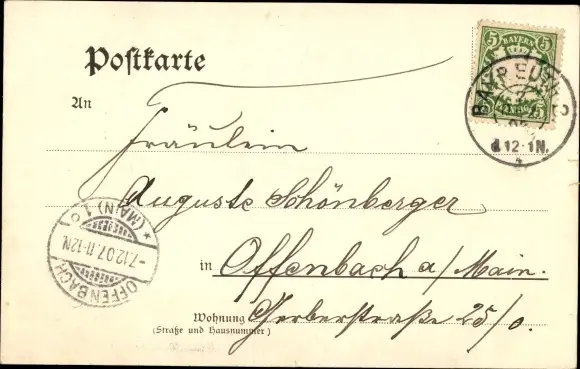 Postkarte
5 BAYERN 5
BAYREUTH
12-1N.
An
Fräulein
Auguste Schönberger
in Offenbach a/Main.
Wohnung Gerberstraße 25/0.
(Straße und Hausnummer)
OFFENBACH
-7.12.07.11-12N.
* (MAIN) 1